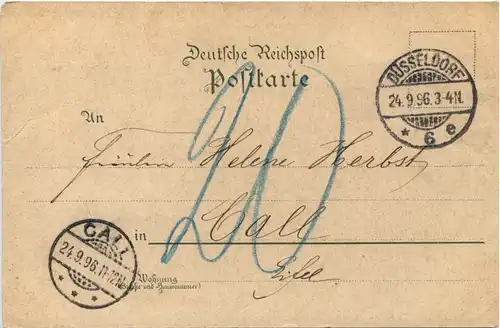 Deutsche Reichspost
Postkarte
DÜSSELDORF
24.9.96.3-4N.
* 6 e
An
Fräulein Helene Herbst
20
in Call
CALL
24.9.96.11-12N.
* * *
Eifel
Wohnung
(Straße und Hausnummer)